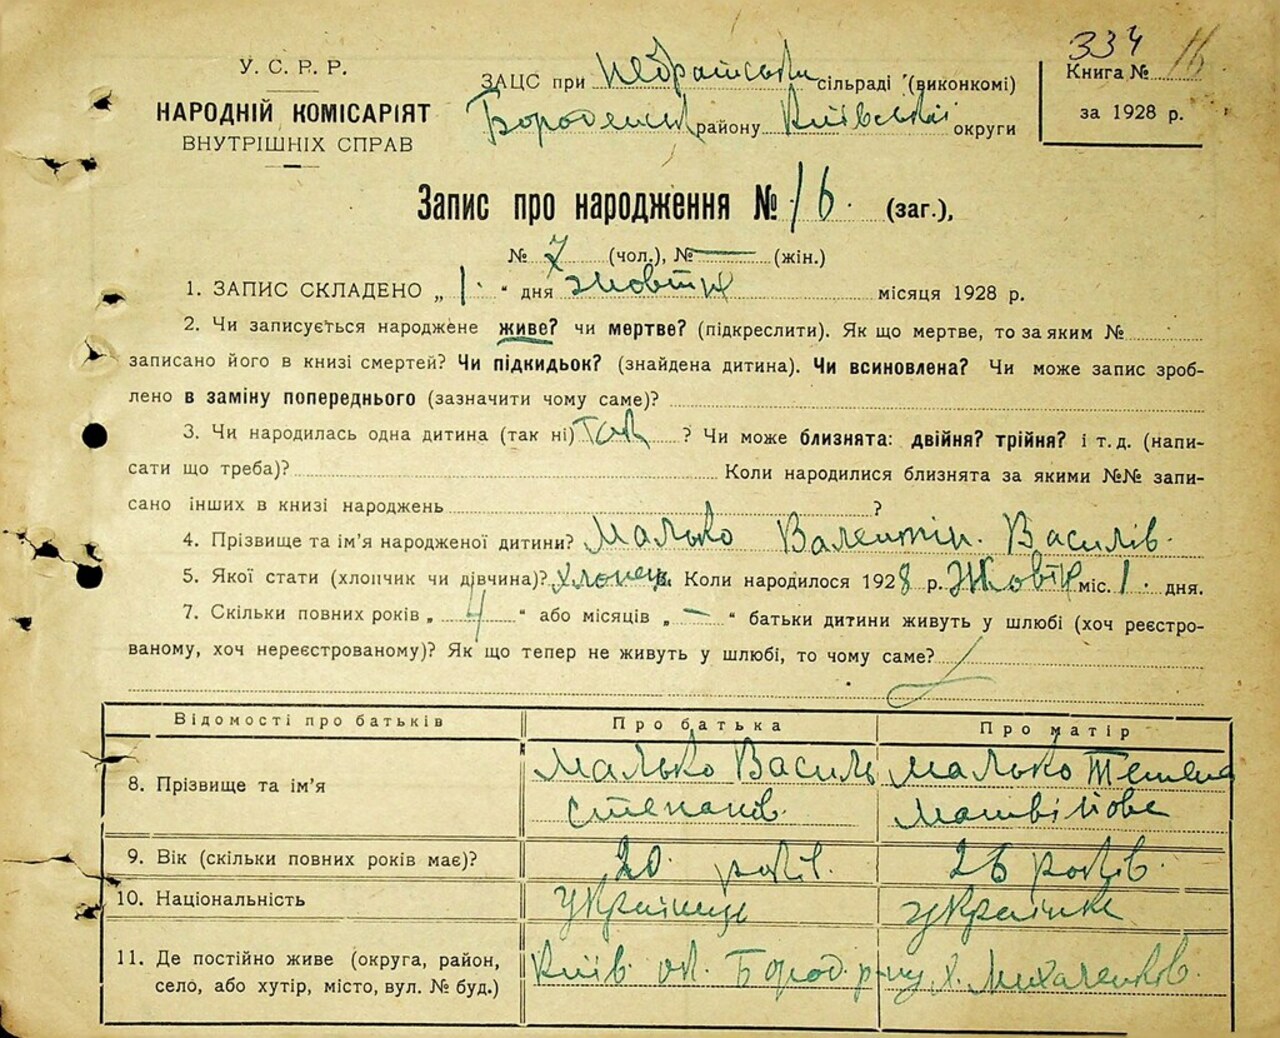 334 16
У. С. Р. Р.
ЗАЦС при Небратські сільраді (виконкомі)
Книга №
НАРОДНІЙ КОМІСАРІЯТ
ВНУТРІШНІХ СПРАВ
району Київської округи
за 1928 р.
Запис про народження № 16. (заг.),
№ 7 (чол.), № — (жін.)
1. ЗАПИС СКЛАДЕНО „ 1. “ дня жовтня місяця 1928 р.
2. Чи записується народжене живе? чи мертве? (підкреслити). Як що мертве, то за яким №
записано його в книзі смертей? Чи підкидьок? (знайдена дитина). Чи всиновлена? Чи може запис зроб-
лено в заміну попереднього (зазначити чому саме)?
3. Чи народилась одна дитина (так ні) так ? Чи може близнята: двійня? трійня? і т. д. (напи-
сати що треба)? Коли народилися близнята за якими №№ запи-
сано інших в книзі народжень ?
4. Прізвище та ім’я народженої дитини? Малько Валентін. Василів.
5. Якої стати (хлопчик чи дівчина)? хлопець. Коли народилося 1928 р. Жовтня міс. 1. дня.
7. Скільки повних років „ 4 “ або місяців „ — “ батьки дитини живуть у шлюбі (хоч реєстро-
ваному, хоч нереєстрованому)? Як що тепер не живуть у шлюбі, то чому саме?
Відомості про батьків Про батька Про матір
8. Прізвище та ім’я Малько Василь Малько Тетяна
Степанів. Матвійовна
9. Вік (скільки повних років має)? 20. років. 26 років.
10. Національність Українець Українка
11. Де постійно живе (округа, район, Київ. ок. Бород. р-ну х. Михаленків.
село, або хутір, місто, вул. № буд.)